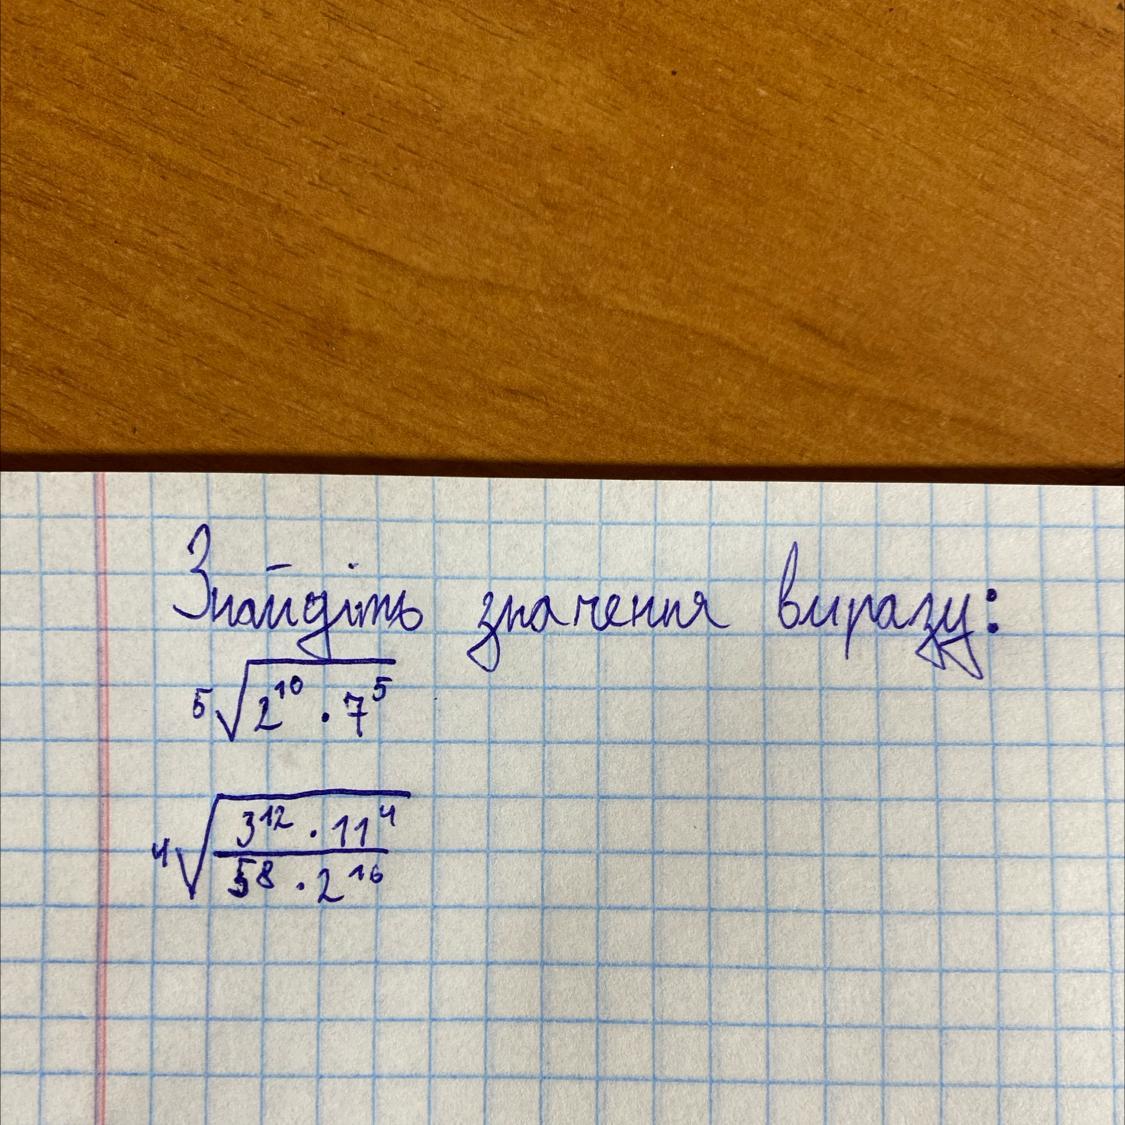 Знайдіть значення виразу:
⁵√(2¹⁰ · 7⁵)
⁴√((3¹² · 11⁴)/(5⁸ · 2¹⁶))